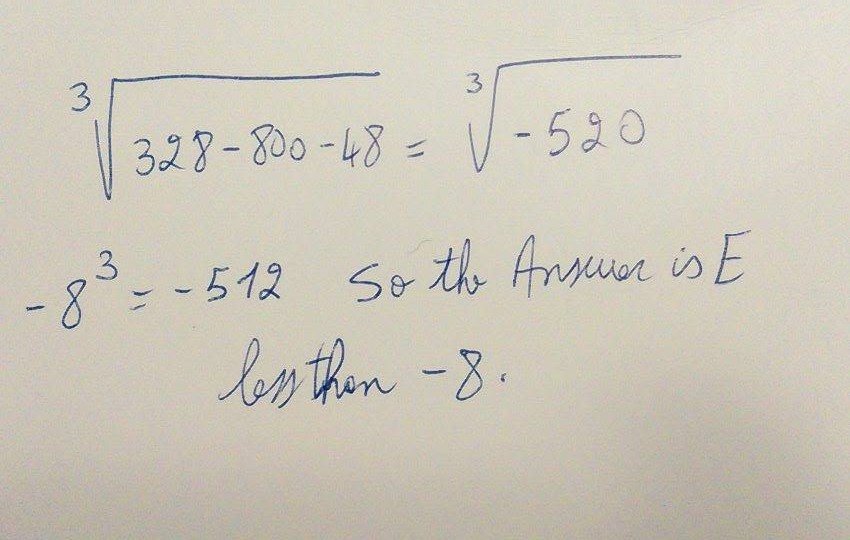 ∛328-800-48 = ∛-520
-8³ = -512 So the Answer is E
less than -8.